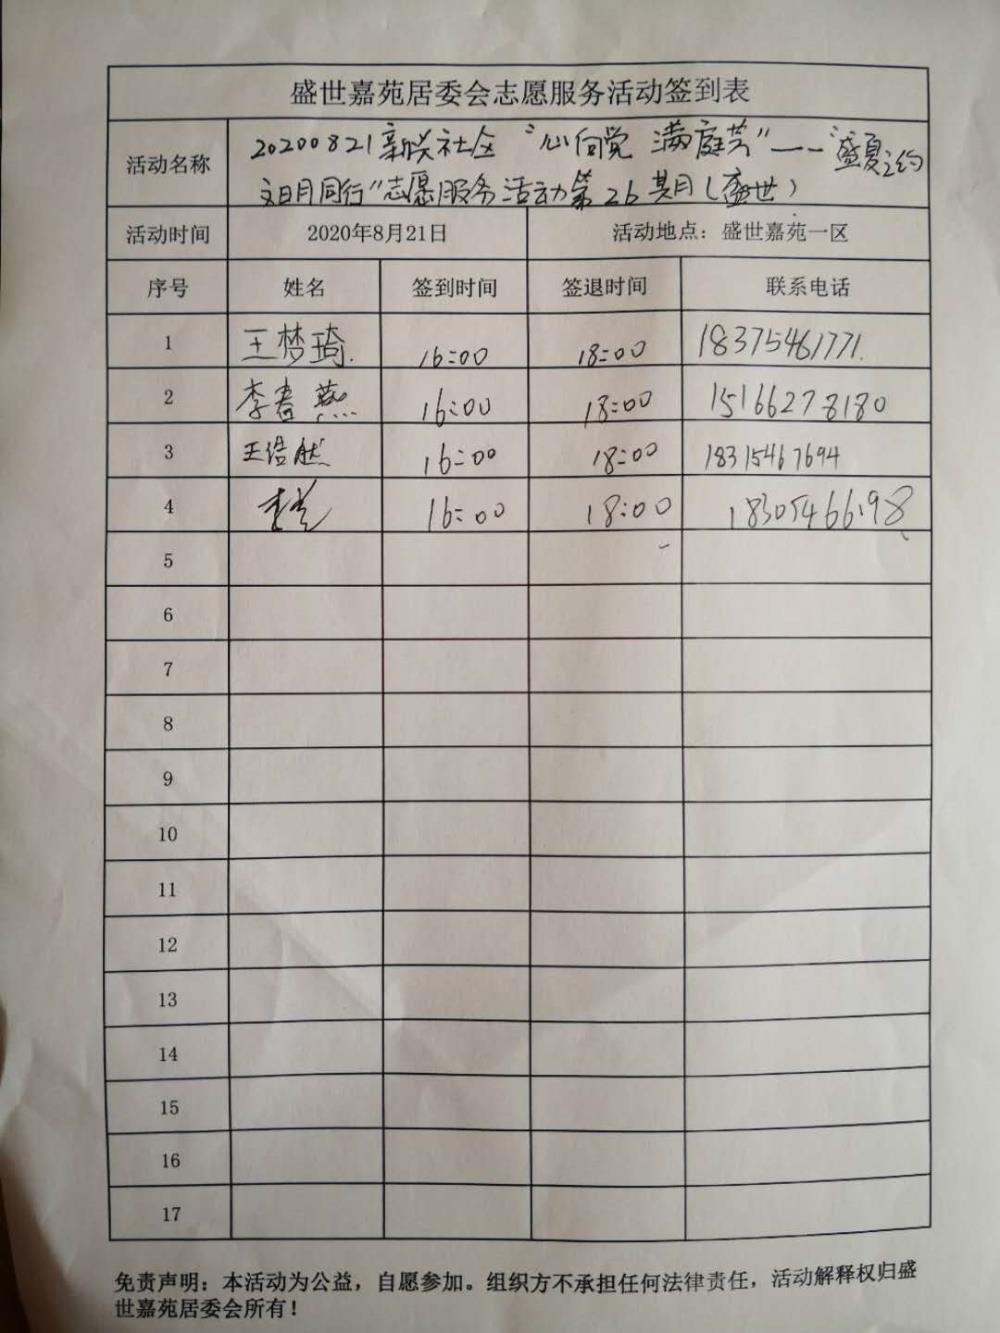 盛世嘉苑居委会志愿服务活动签到表
活动名称 20200821新兴社区“心向党 满庭芳”——“盛夏之约
文明同行”志愿服务活动第26期(盛世)
活动时间 2020年8月21日 活动地点：盛世嘉苑一区
序号 姓名 签到时间 签退时间 联系电话
1 王梦琦 16:00 18:00 18375461771
2 李春燕 16:00 18:00 15166278180
3 王浩然 16:00 18:00 18315467694
4 16:00 18:00 18305466198
5
6
7
8
9
10
11
12
13
14
15
16
17
免责声明：本活动为公益，自愿参加。组织方不承担任何法律责任，活动解释权归盛
世嘉苑居委会所有！